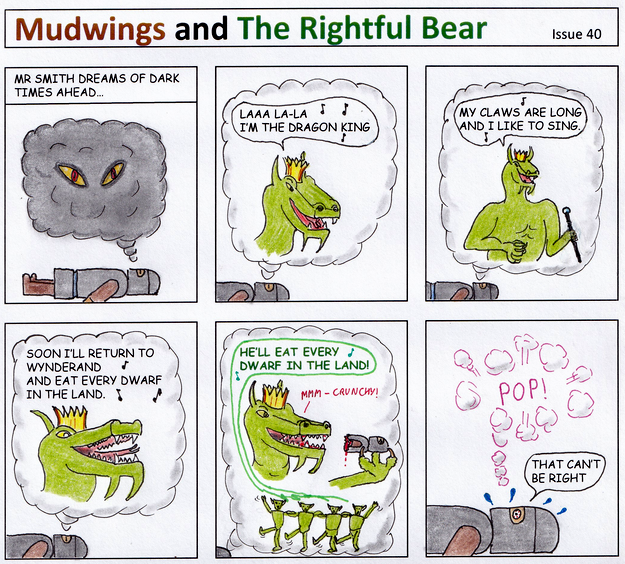 Mudwings and The Rightful Bear
Issue 40
MR SMITH DREAMS OF DARK
TIMES AHEAD...
LAAA LA-LA
I'M THE DRAGON KING
MY CLAWS ARE LONG
AND I LIKE TO SING.
SOON I'LL RETURN TO
WYNDERAND
AND EAT EVERY DWARF
IN THE LAND.
HE'LL EAT EVERY
DWARF IN THE LAND!
MMM - CRUNCHY!
POP!
THAT CAN'T
BE RIGHT